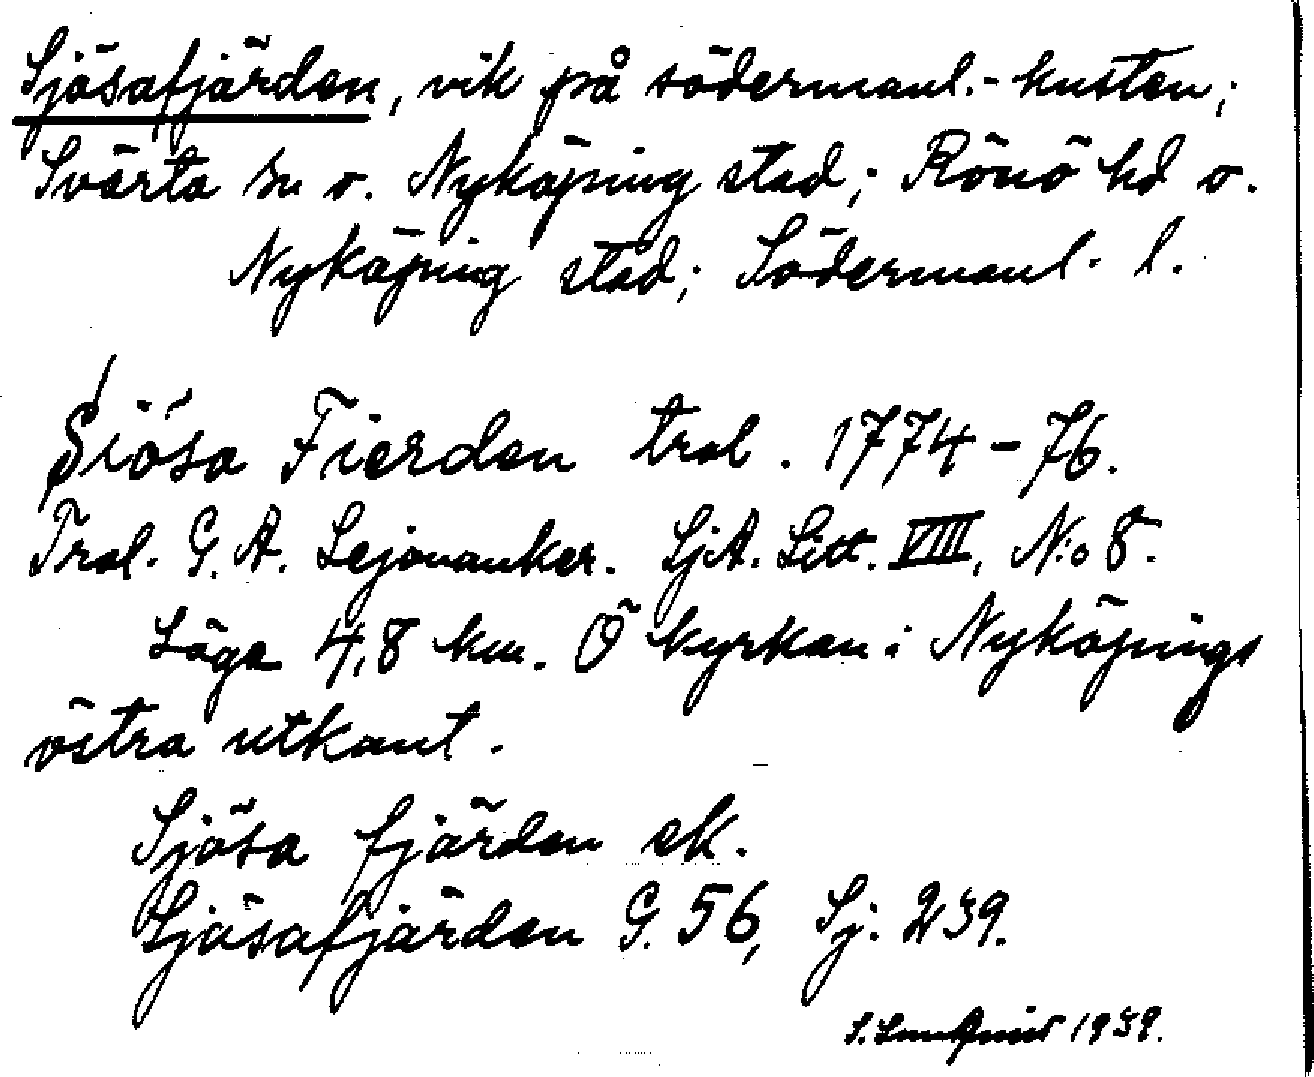 Sjösafjärden, vik på södermanl.-kusten;
Svärta sn o. Nyköping stad; Rönö hd o.
Nyköping stad; Södermanl. l.
Siösa Fierden tral. 1774-76.
Tral. G. A. Lejonanker. SjA. Litt. VIII, N:o 8.
Läge 4,8 km. Ö kyrkan i Nyköpings
östra utkant.
Sjösa fjärden ek.
Sjösafjärden G. 56, Sj. 239.
S. 1939.